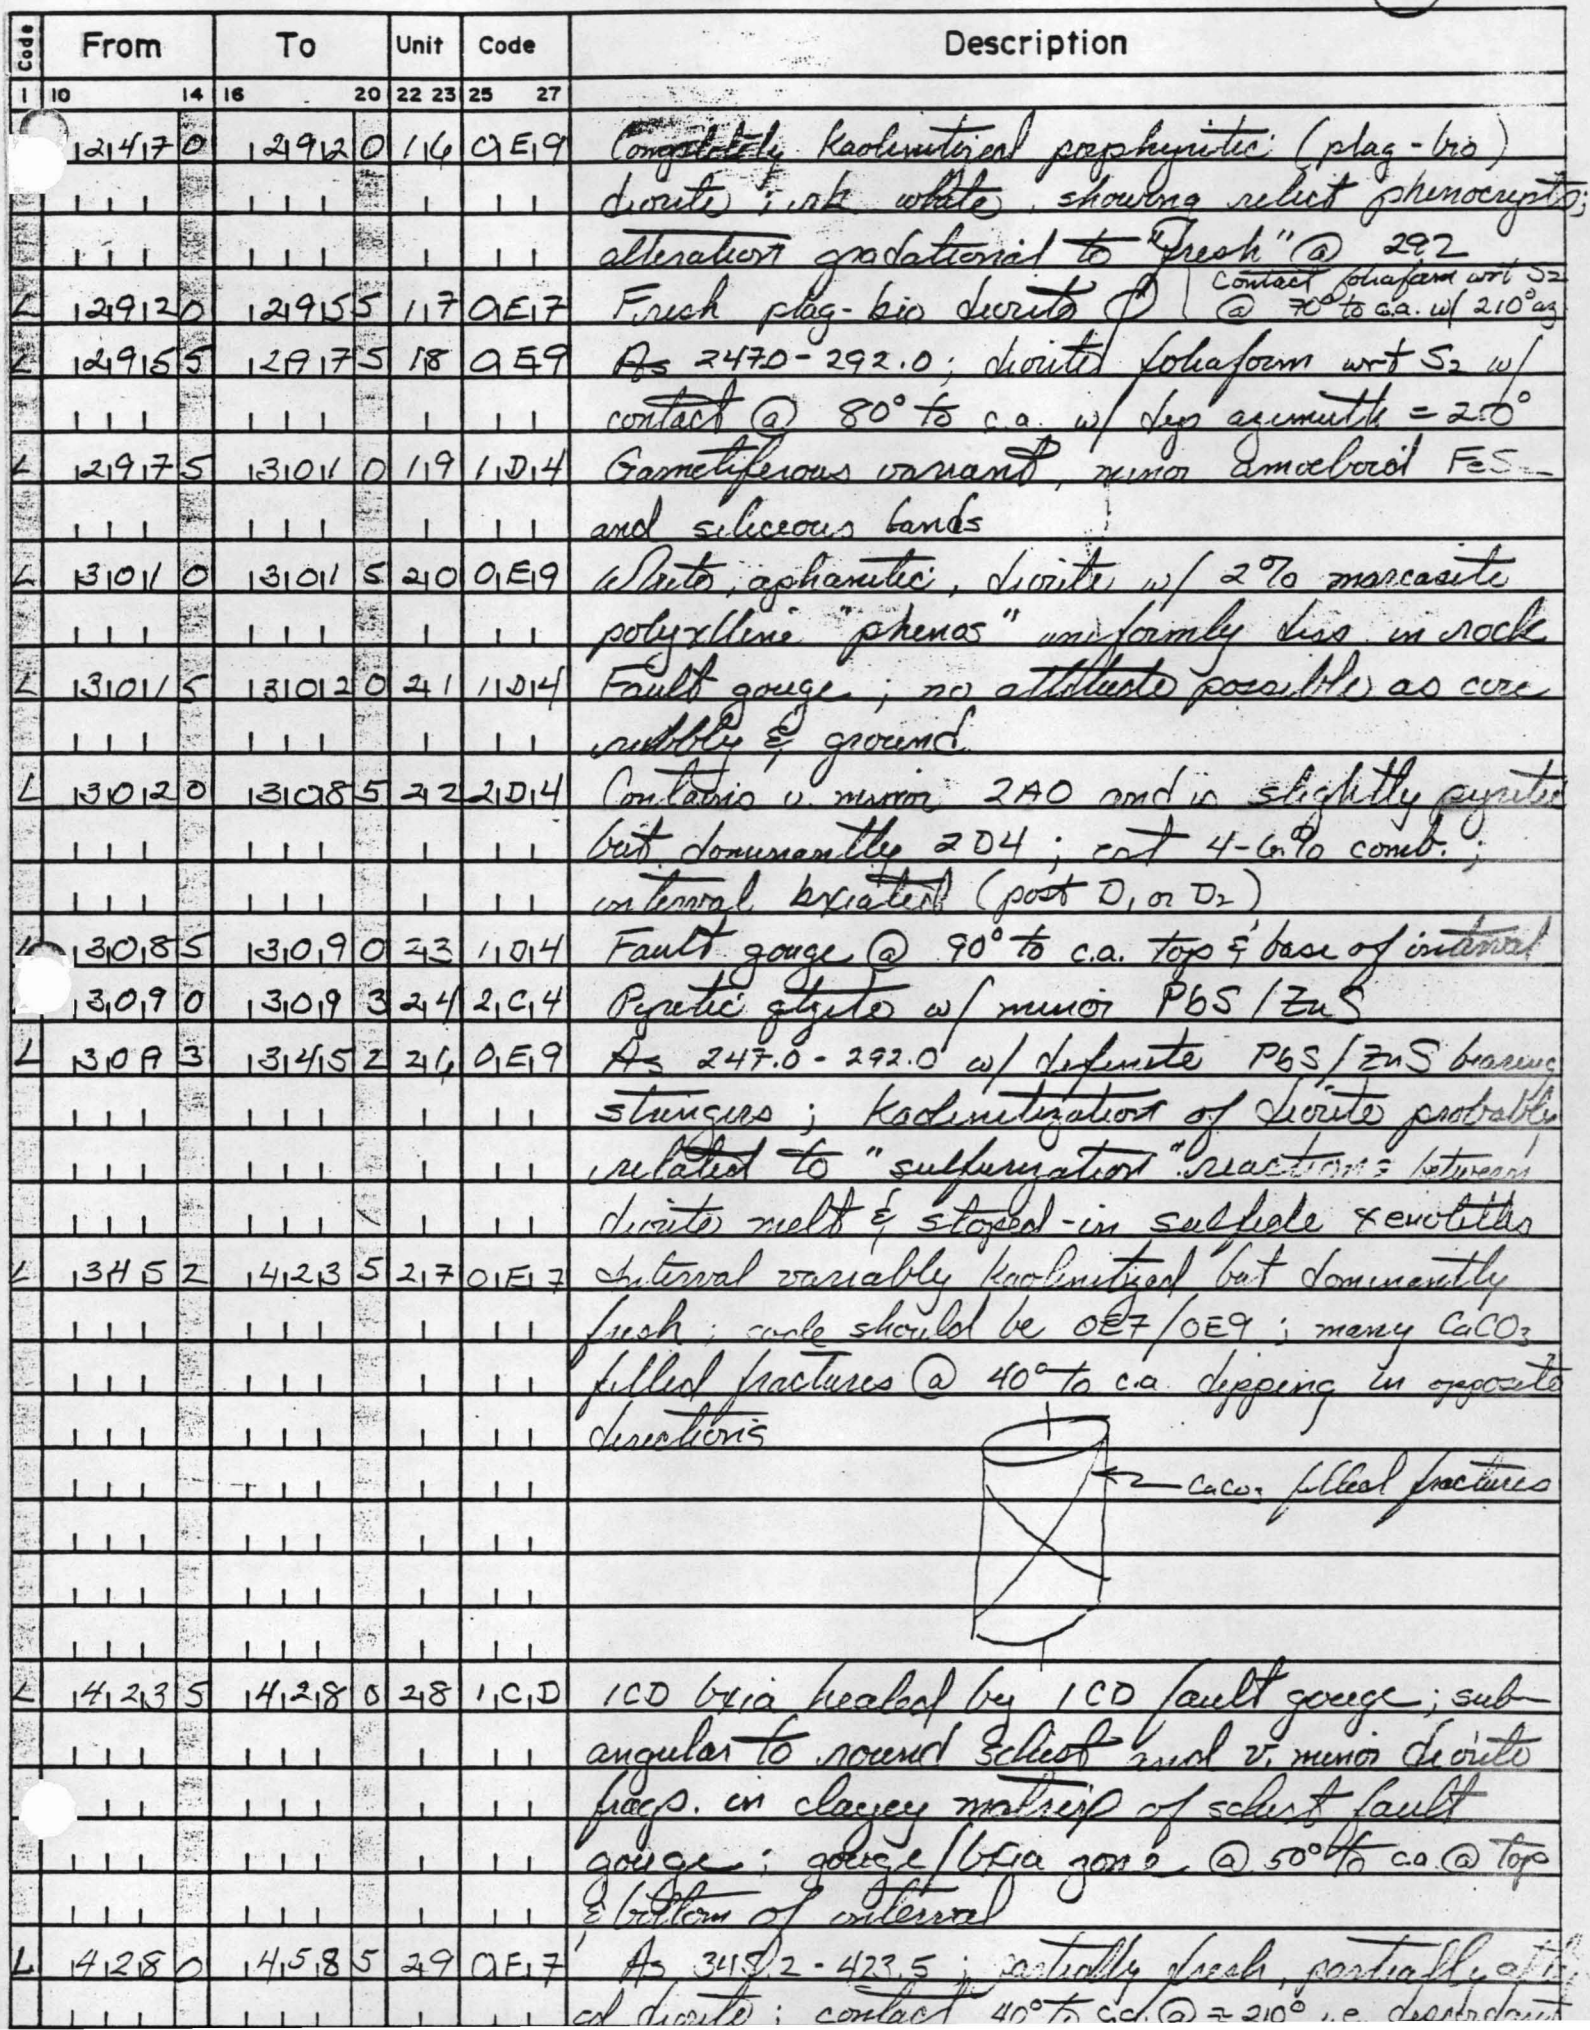 Code From To Unit Code Description
1 10 14 16 20 22 23 25 27
247 0 292 0 16 0E9 Completely Kaolinitized porphyritic (plag-bio)
diorite; white, showing relict phenocrysts;
alteration gradational to "fresh" @ 292
L 292 0 295 5 17 0E7 Fresh plag-bio diorite Contact foliaform wrt S2
@ 70° to c.a. w/ 210° az
L 295 5 297 5 18 0E9 As 247.0-292.0; diorite foliaform wrt S2 w/
contact @ 80° to c.a. w/ dip azimuth = 210°
L 297 5 301 0 19 1D4 Garnetiferous variant, minor amoeboid FeS
and siliceous bands
L 301 0 301 5 20 0E9 White, aphanitic, diorite w/ 2% marcasite
polyxlline "phenos" uniformly diss. in rock
L 301 5 302 0 21 1D4 Fault gouge; no attitude possible as core
rubbly & ground
L 302 0 308 5 22 2D4 Contains v. minor 2A0 and is slightly pyritic
but dominantly 2D4; est 4-6% comb.;
interval bxiated (post D1 or D2)
L 308 5 309 0 23 1D4 Fault gouge @ 90° to c.a. top & base of interval
309 0 309 3 24 2C4 Pyritic qtzite w/ minor PbS/ZnS
L 309 3 345 2 26 0E9 As 247.0-292.0 w/ definite PbS/ZnS bearing
stringers; Kaolinitization of diorite probably
related to "sulfurization" reactions between
diorite melt & stoped-in sulfide xenoliths
L 345 2 423 5 27 0E7 Interval variably Kaolinitized but dominantly
fresh; code should be 0E7/0E9; many CaCO3
filled fractures @ 40° to c.a. dipping in opposite
directions
CaCO3 filled fractures
L 423 5 428 0 28 1CD 1CD bxia healed by 1CD fault gouge; sub-
angular to round schist and v. minor diorite
frags. in clayey matrix of schist fault
gouge; gouge/bxia zone @ 50° to c.a. @ top
& bottom of interval
L 428 0 458 5 29 0E7 As 345.2-423.5; partially fresh, partially
diorite; contact 40° to c.a. @ ≈ 210° i.e. discordant